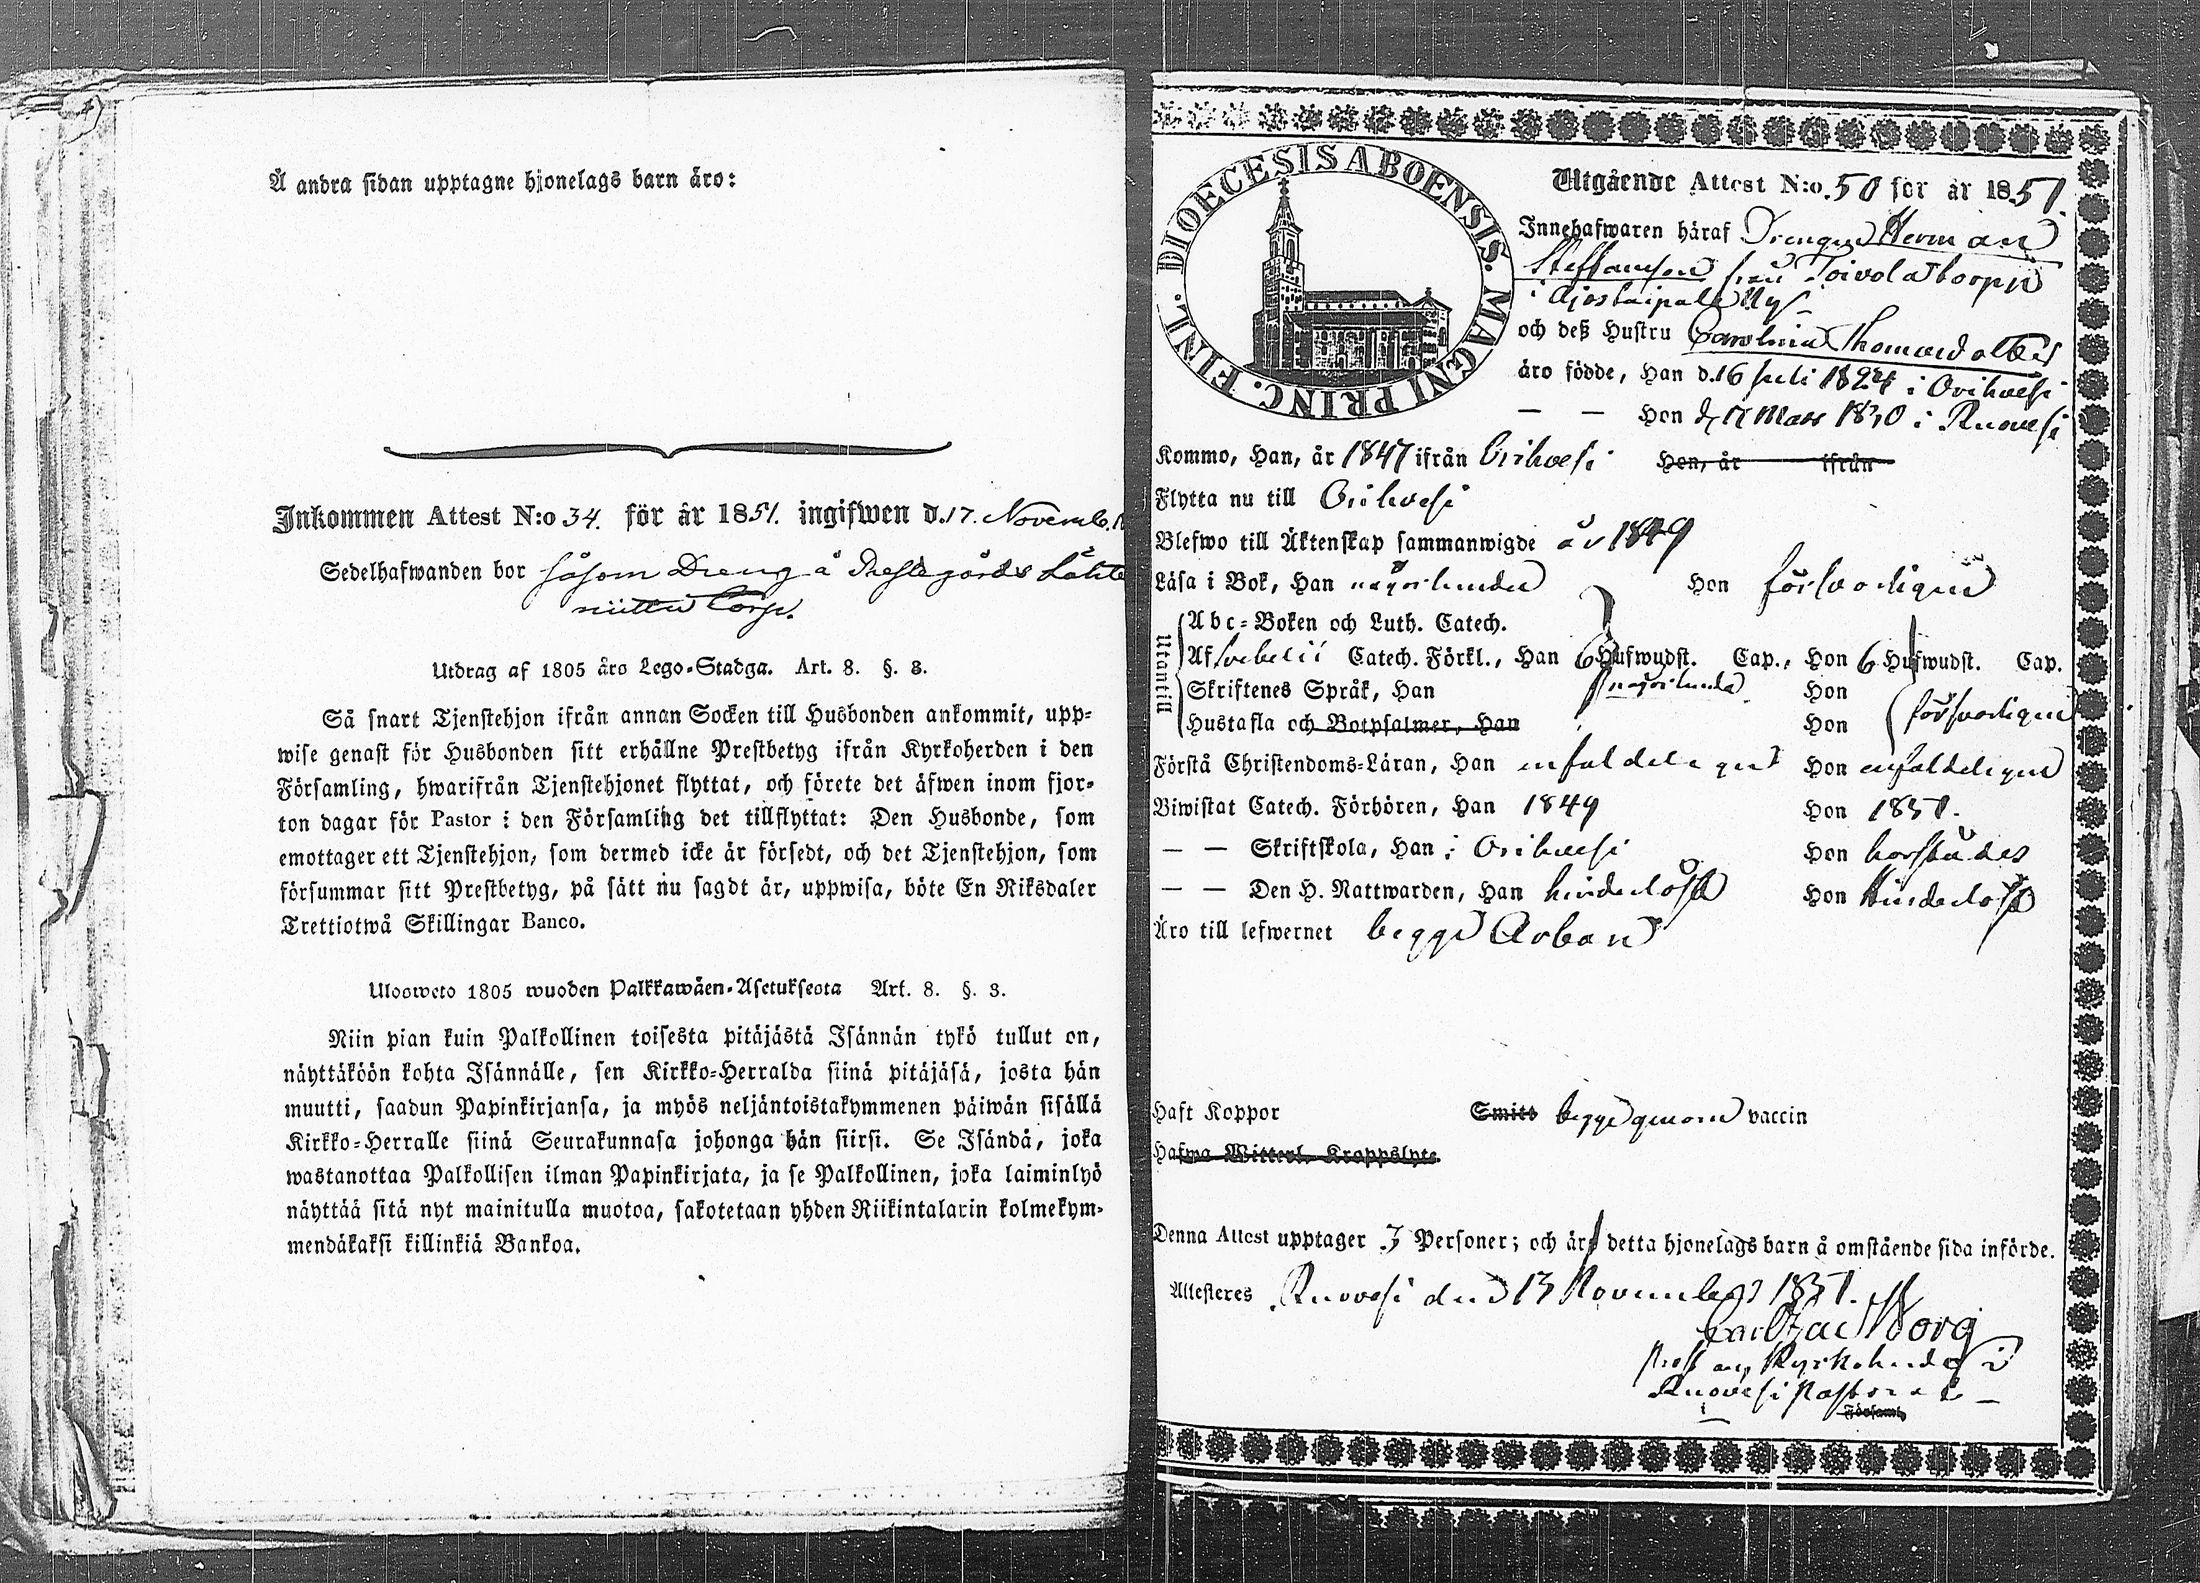 Å andra sidan upptagne hjonelags barn äro:
Inkommen Attest N:o 34. för år 1851. ingifwen d. 17. Novemb.
Sedelhafwanden bor såsom Dreng å Prestegårds
Torp.
Utdrag af 1805 års Lego-Stadga. Art. 8. §. 3.
Så snart Tjenstehjon ifrån annan Socken till Husbonden ankommit, upp-
wise genast för Husbonden sitt erhållne Prestbetyg ifrån Kyrkoherden i den
Församling, hwarifrån Tjenstehjonet flyttat, och förete det äfwen inom fjor-
ton dagar för Pastor i den Församling det tillflyttat: Den Husbonde, som
emottager ett Tjenstehjon, som dermed icke är försedt, och det Tjenstehjon, som
försummar sitt Prestbetyg, på sätt nu sagdt är, uppwisa, böte En Riksdaler
Trettiotwå Skillingar Banco.
Ulosweto 1805 wuoden Palkkawäen-Asetuksesta Art. 8. §. 3.
Niin pian kuin Palkollinen toisesta pitäjästä Isännän tykö tullut on,
näyttäköön kohta Isännälle, sen Kirkko-Herralda siinä pitäjäsä, josta hän
muutti, saadun Papinkirjansa, ja myös neljäntoistakymmenen päiwän sisällä
Kirkko-Herralle siinä Seurakunnasa johonga hän siirsi. Se Isändä, joka
wastanottaa Palkollisen ilman Papinkirjata, ja se Palkollinen, joka laiminlyö
näyttää sitä nyt mainitulla muotoa, sakotetaan yhden Riikintalarin kolmekym-
mendäkaksi killinkiä Bankoa.
DIOECESIS ABOENSIS. MAGNI PRINC. FINL.
Utgående Attest N:o. 50 för år 1851.
Innehafwaren häraf Drengen Herman
Steffansson från Toivola torp
i
och deß Hustru Carolina Thomasdotter
äro födde, Han d. 16 Juli 1824 i Orihvesi
— — Hon d. 17 Mars 1830 i Ruovesi
Kommo, Han, år 1847 ifrån Orihvesi Hon, år ifrån
Flytta nu till Orihvesi
Blefwo till Äktenskap sammanwigde år 1849
Läsa i Bok, Han någorlunda Hon försvarligen
Utantill
Abc-Boken och Luth. Catech.
Afsvebelii Catech. Förkl., Han 6 Hufwudst. Cap., Hon 6 Hufwudst. Cap.
Skriftenes Språk, Han någorlunda Hon
Hustafla och Botpsalmer, Han Hon försvarligen
Förstå Christendoms-Läran, Han enfaldeligen Hon enfaldeligen
Biwistat Catech. Förhören, Han 1849 Hon 1851.
— — Skriftskola, Han i Orihvesi Hon härstädes
— — Den H. Nattwarden, Han hinderlöse Hon hinderlöse
Äro till lefwernet begge Ärbara
Haft Koppor Smitt begge genom vaccin
Hafwa Witterl. Kroppslyte
Denna Attest upptager 3 Personer; och är detta hjonelags barn å omstående sida införde.
Attesteras Ruovesi den 13 November 1851.
Borg
Prost och Kyrkoherde i
Ruovesi Pastorat
Församl.